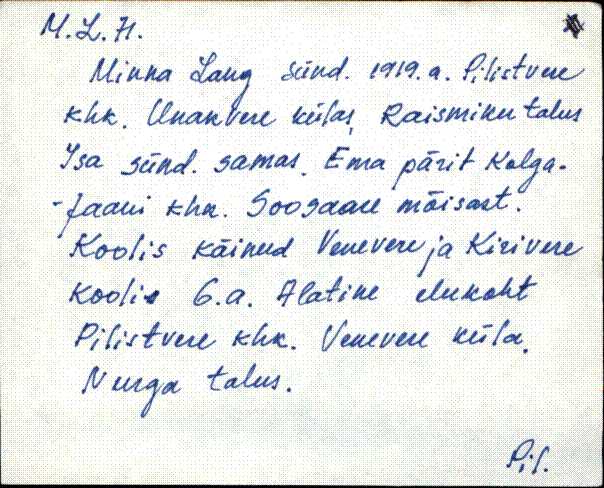 M.L.H.
Minna Lang sünd. 1919.a. Pilistvere
khk. Unakvere külas, Raismiku talus
Isa sünd. samas. Ema pärit Kolga-
-Jaani khk. Soosaare mõisast.
Koolis käinud Venevere ja Kirivere
koolis 6.a. Alatine elukoht
Pilistvere khk. Venevere küla,
Nurga talus.
Pil.